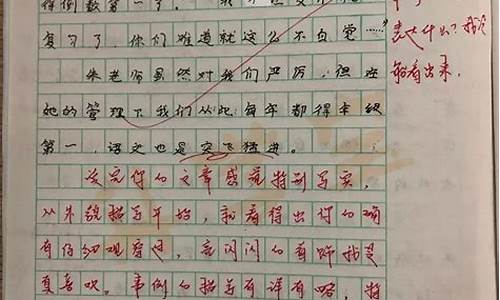 得倒数第一了。
复习了，你们难道就这么不自觉……”
朱老师虽然对我们严厉，但在
她的管理下我们从此每年都得年级
第一，语文也是突飞猛进。
读完你的文章感觉特别写实，
从外貌描写开始，就看得出你的确
有仔细观察过，亮闪闪的
真喜欢。事例的描写有详有略，将
表达什么？我没
能看出来。